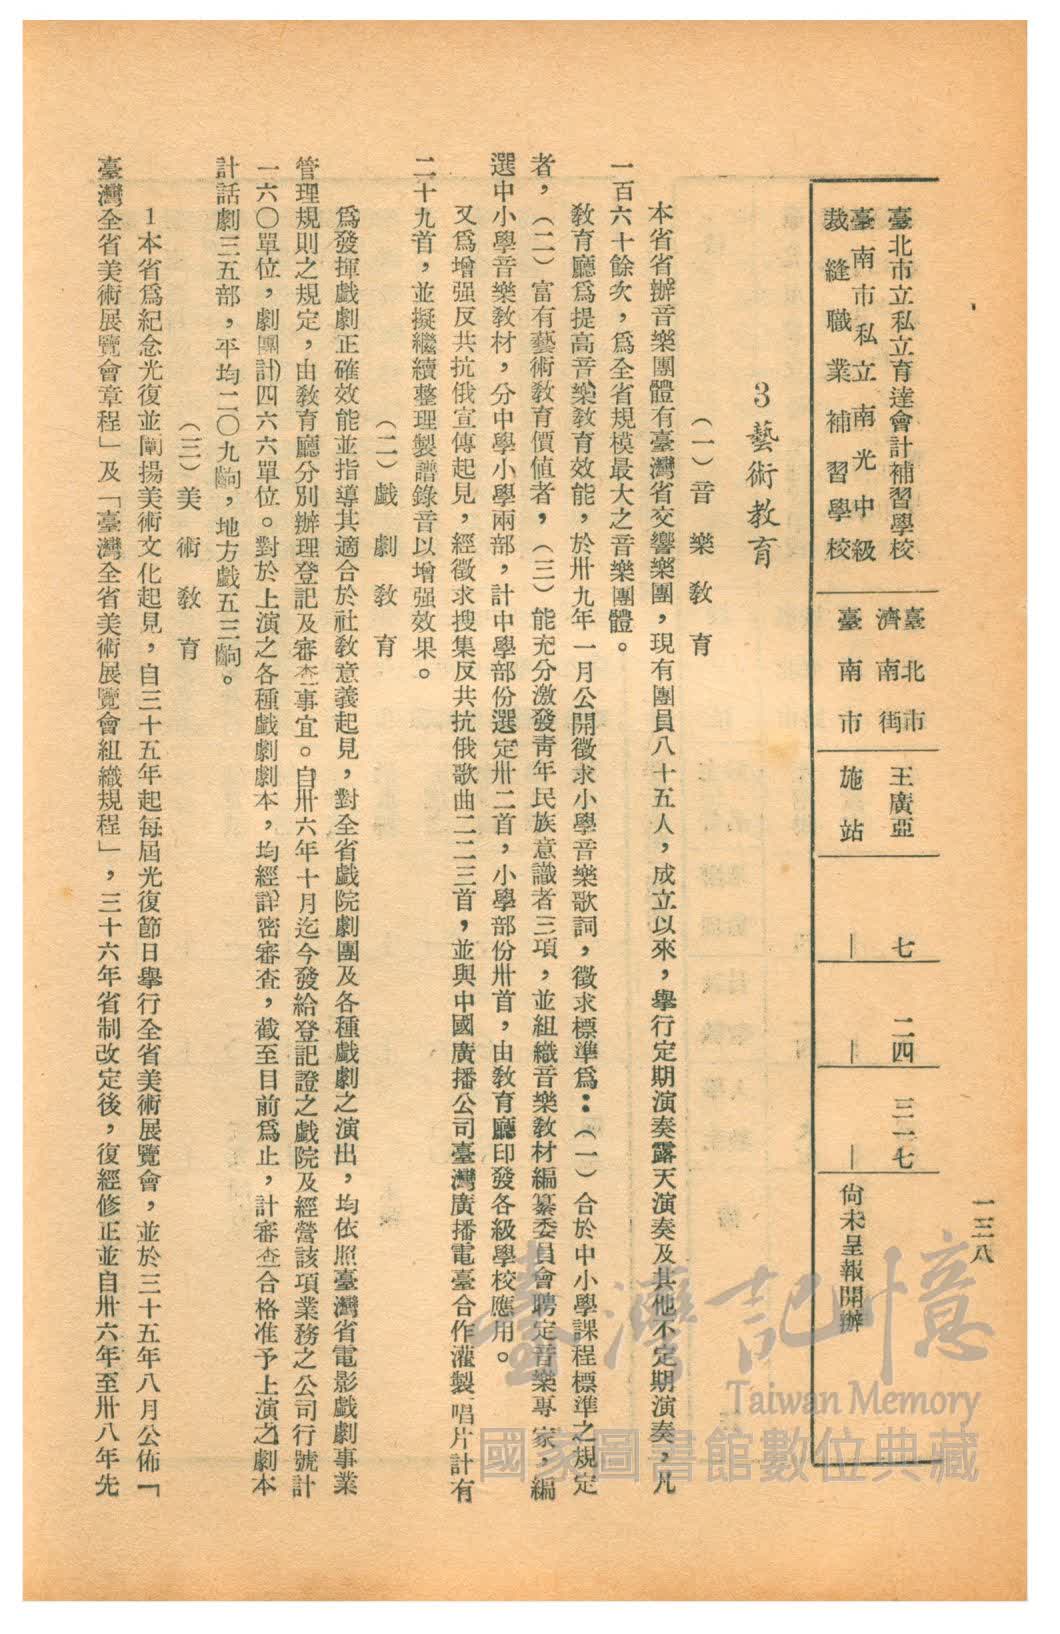 一三八
臺北市立私立育達會計補習學校
臺北市
濟南街
王廣亞
七
二四
三一七
臺南市私立南光中級
裁縫職業補習學校
臺南市
施站
—
—
—
尙未呈報開辦
3藝術敎育
（一）音樂敎育
本省省辦音樂團體有臺灣省交響樂團，現有團員八十五人，成立以來，擧行定期演奏露天演奏及其他不定期演奏，凡
一百六十餘次，爲全省規模最大之音樂團體。
敎育廳爲提高音樂敎育效能，於卅九年一月公開徵求小學音樂歌詞，徵求標準爲：（一）合於中小學課程標準之規定
者，（二）富有藝術敎育價値者，（三）能充分激發靑年民族意識者三項，並組織音樂敎材編纂委員會聘定音樂專家，編
選中小學音樂敎材，分中學小學兩部，計中學部份選定卅二首，小學部份卅首，由敎育廳印發各級學校應用。
又爲增强反共抗俄宣傳起見，經徵求搜集反共抗俄歌曲二二三首，並與中國廣播公司臺灣廣播電臺合作灌製唱片計有
二十九首，並擬繼續整理製譜錄音以增强效果。
（二）戲劇敎育
爲發揮戲劇正確效能並指導其適合於社敎意義起見，對全省戲院劇團及各種戲劇之演出，均依照臺灣省電影戲劇事業
管理規則之規定，由敎育廳分別辦理登記及審查事宜。自卅六年十月迄今發給登記證之戲院及經營該項業務之公司行號計
一六〇單位，劇團計四六六單位。對於上演之各種戲劇劇本，均經詳密審查，截至目前爲止，計審查合格准予上演之劇本
計話劇三五部，平均二〇九齣，地方戲五三齣。
（三）美術敎育
1本省爲紀念光復並闡揚美術文化起見，自三十五年起每屆光復節日擧行全省美術展覽會，並於三十五年八月公佈「
臺灣全省美術展覽會章程」及「臺灣全省美術展覽會組織規程」，三十六年省制改定後，復經修正並自卅六年至卅八年先
臺灣記憶
Taiwan Memory
國家圖書館數位典藏